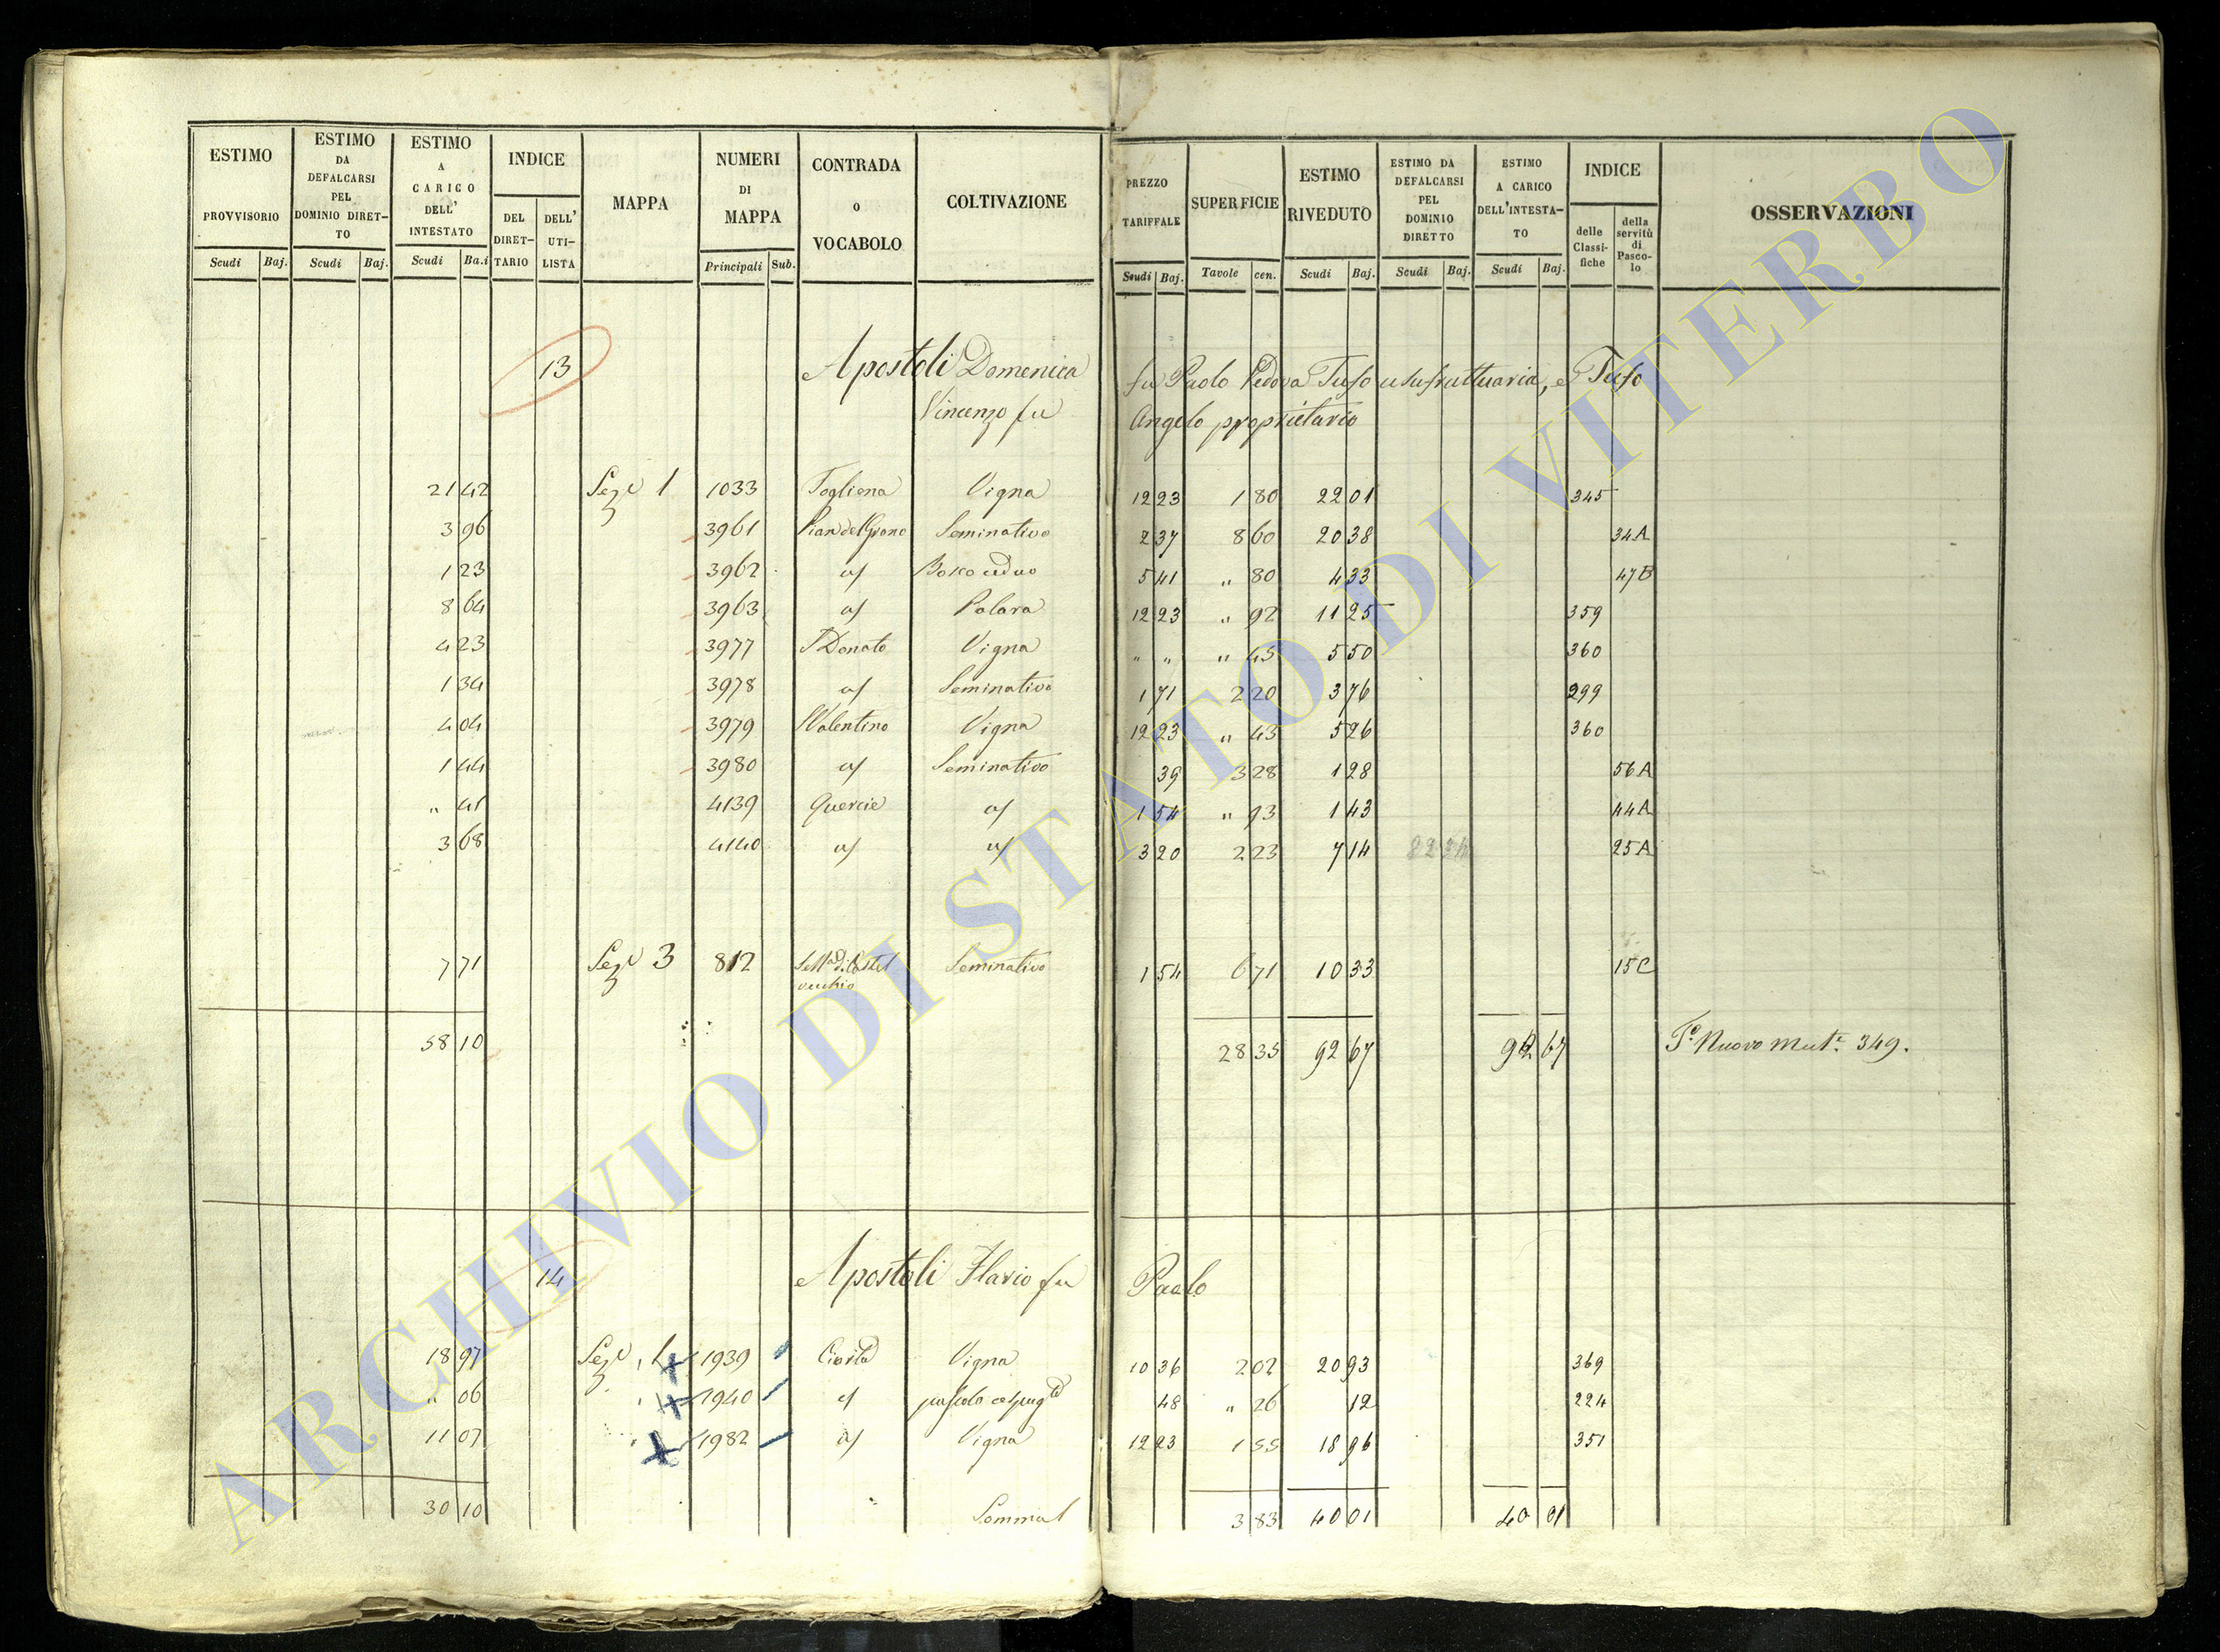 ESTIMO PROVVISORIO | ESTIMO DA DEFALCARSI PEL DOMINIO DIRET-TO | ESTIMO A CARICO DELL' INTESTATO | INDICE | MAPPA | NUMERI DI MAPPA | CONTRADA O VOCABOLO | COLTIVAZIONE | PREZZO TARIFFALE | SUPERFICIE | ESTIMO RIVEDUTO | ESTIMO DA DEFALCARSI PEL DOMINIO DIRETTO | ESTIMO A CARICO DELL'INTESTA-TO | INDICE | OSSERVAZIONI
DEL DIRET-TARIO | DELL' UTI-LISTA | delle Classi-fiche | della servitù di Pasco-lo
Scudi | Baj. | Scudi | Baj. | Scudi | Ba.i | Principali | Sub. | Scudi | Baj. | Tavole | cen. | Scudi | Baj. | Scudi | Baj. | Scudi | Baj.
13 Apostoli Domenica fu Paolo Vedova Tufo usufruttuaria, e Tufo
Vincenzo fu Angelo proprietario
21 42 | Sez.e 1 | 1033 | Fogliena | Vigna | 12 23 | 1 80 | 22 01 | 345
3 96 | 3961 | Pian del Grano | Seminativo | 2 37 | 8 60 | 20 38 | 34A
1 23 | 3962 | a/ | Bosco ceduo | 5 41 | " 80 | 4 33 | 47B
8 64 | 3963 | a/ | 12 23 | " 92 | 11 25 | 359
4 23 | 3977 | S Donato | Vigna | " " | " 45 | 5 50 | 360
1 34 | 3978 | a/ | Seminativo | 1 71 | 2 20 | 3 76 | 299
4 04 | 3979 | S Valentino | Vigna | 12 23 | " 43 | 5 26 | 360
1 44 | 3980 | a/ | Seminativo | 39 | 3 28 | 1 28 | 56A
" 41 | 4139 | Quercie | a/ | 1 54 | " 93 | 1 43 | 44A
3 68 | 4140 | a/ | a/ | 3 20 | 2 23 | 7 14 | 25A
7 71 | Sez.e 3 | 812 | vecchio | Seminativo | 1 54 | 6 71 | 10 33 | 15C
58 10 | 28 35 | 92 67 | 92 67 | Nuovo Mut.e 349.
14 Apostoli Flavio fu Paolo
18 97 | Sez.e 1 | 1939 | Civita | Vigna | 10 36 | 2 02 | 20 93 | 369
" 06 | 1940 | a/ | pascolo cespug.to | 48 | " 26 | 12 | 224
11 07 | 1982 | a/ | Vigna | 12 23 | 1 55 | 18 96 | 351
30 10 | 3 83 | 40 01 | 40 01
ARCHIVIO DI STATO DI VITERBO